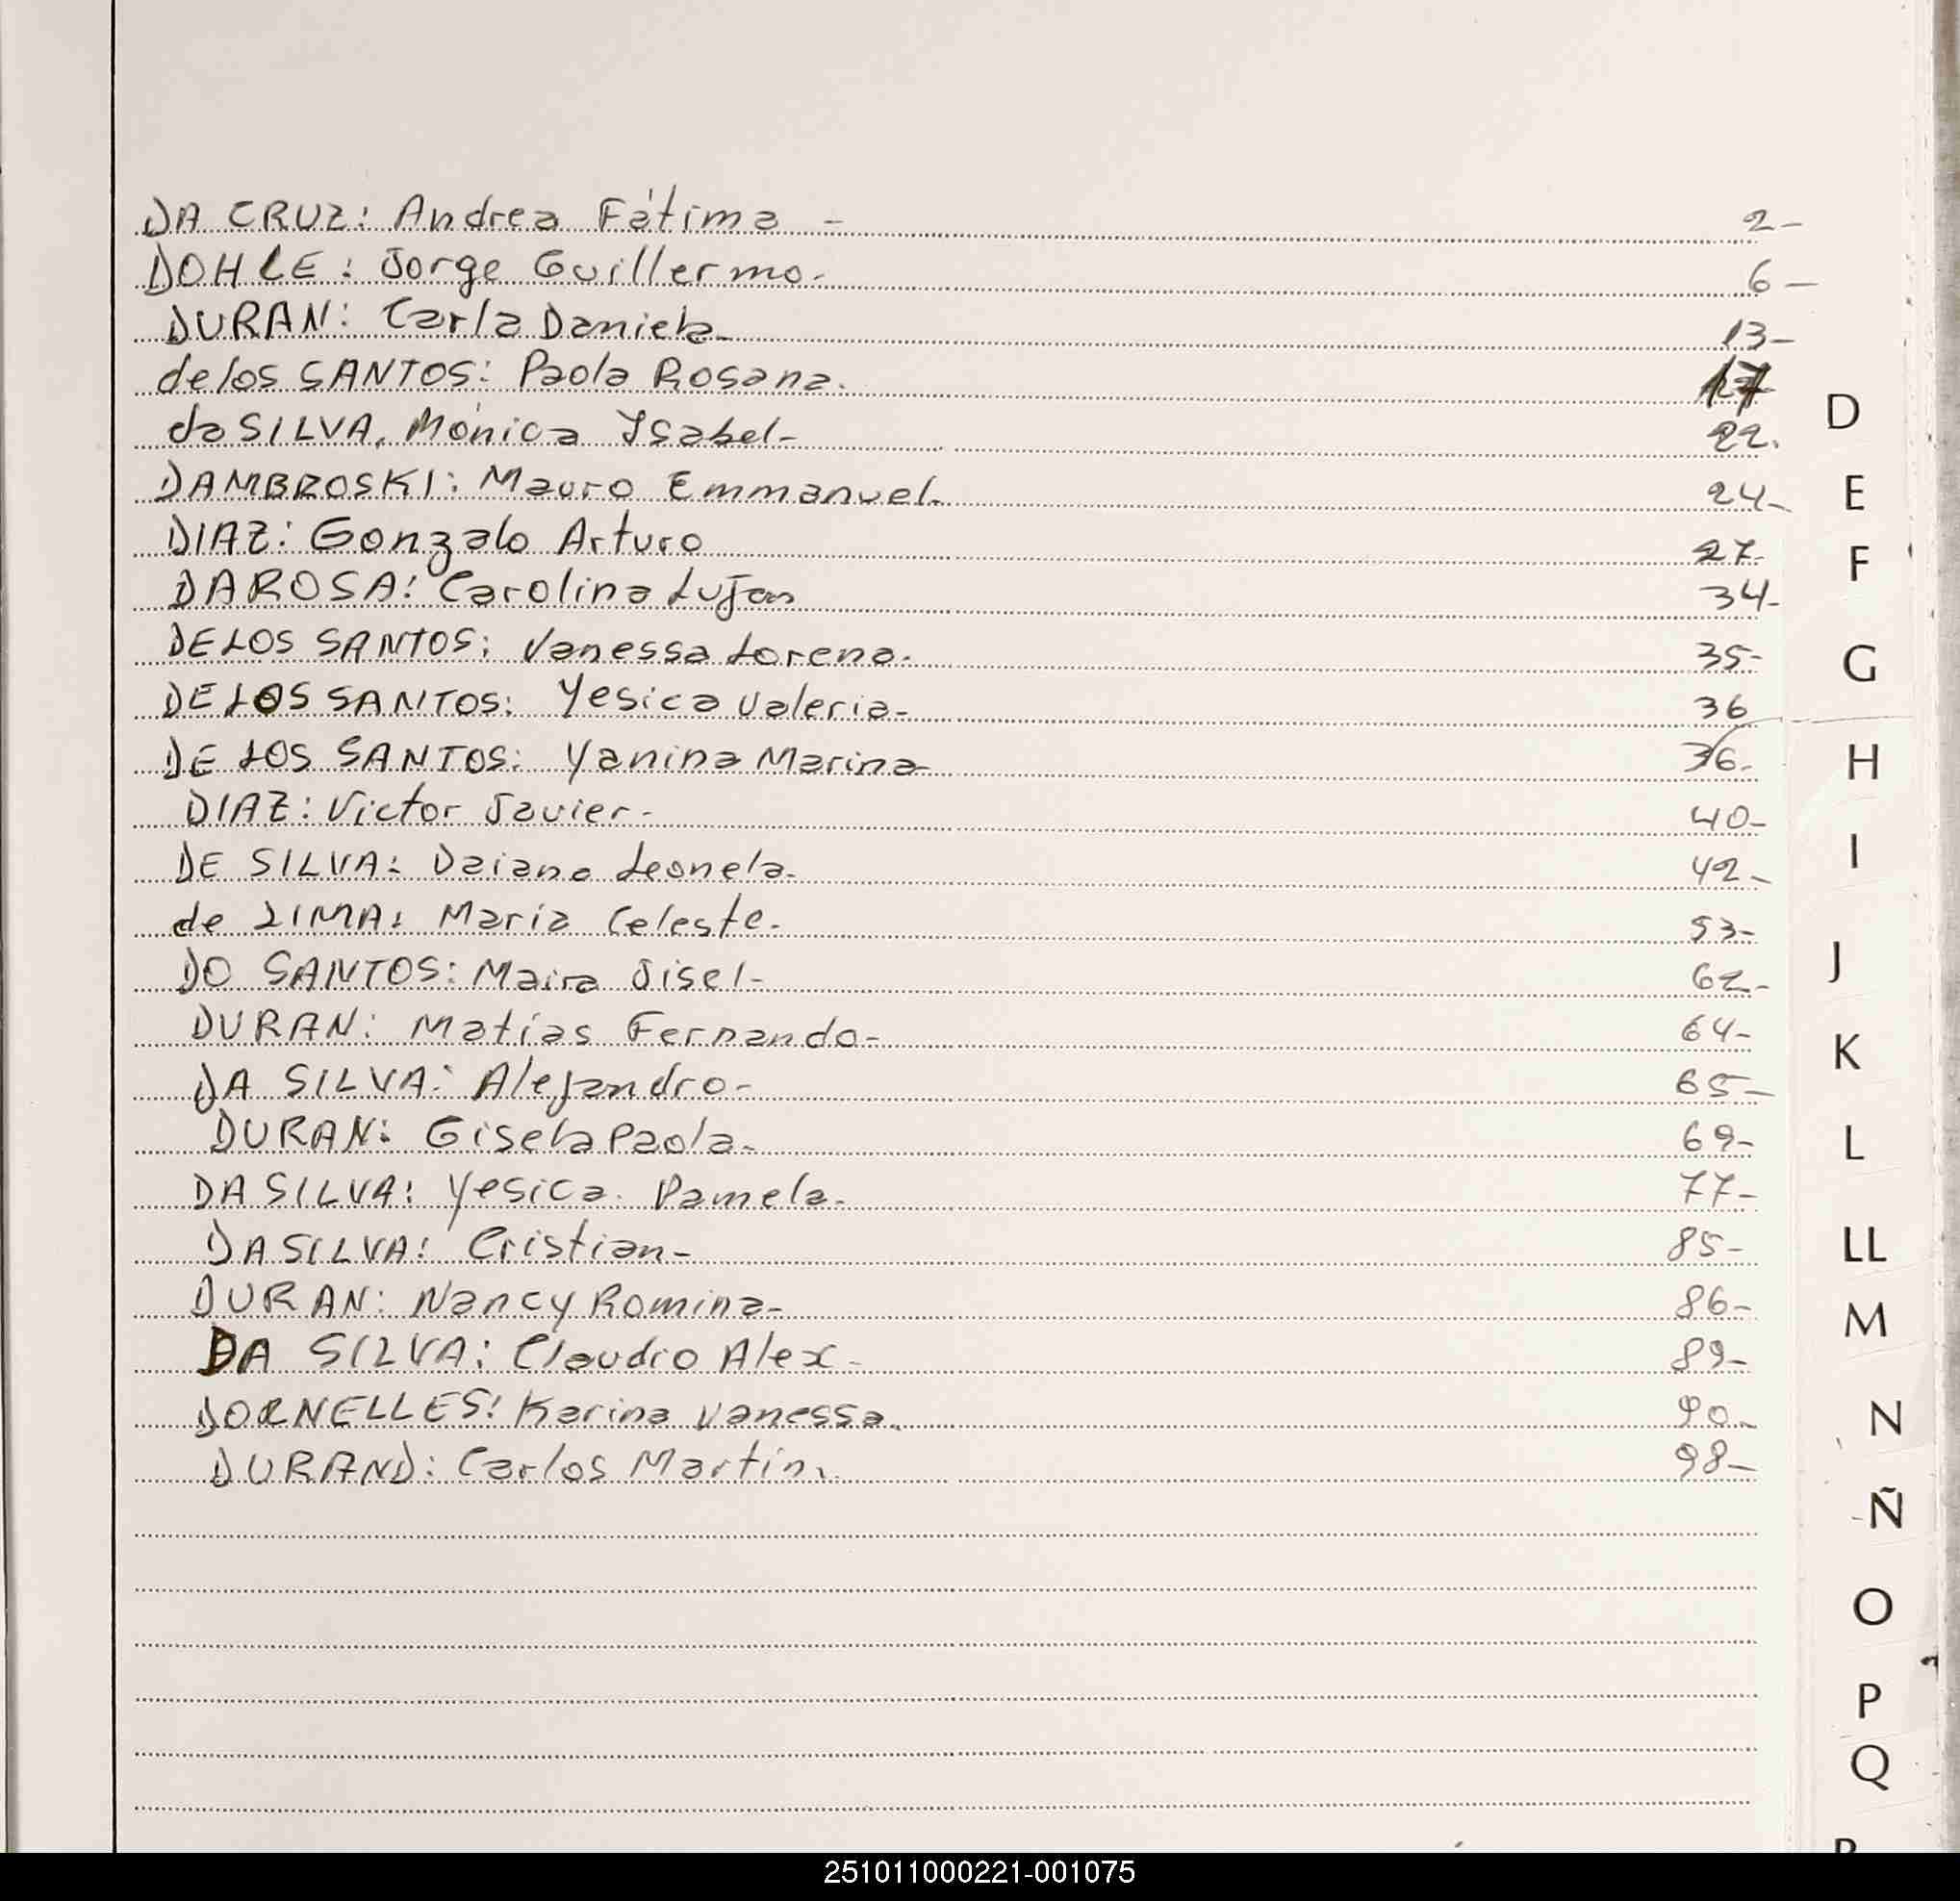 DA CRUZ: Andrea Fátima - 2-
DOHLE: Jorge Guillermo. 6-
DURAN: Carla Daniela- 13-
de los SANTOS: Paola Rosana. 17
da SILVA, Mónica Ysabel- 22.
DAMBROSKI: Mauro Emmanuel- 24-
DIAZ: Gonzalo Arturo 27-
DAROSA: Carolina Lujan 34-
DE LOS SANTOS: Vanessa Lorena. 35-
DE LOS SANTOS: Yesica Valeria- 36
DE LOS SANTOS: Yanina Marina- 36-
DIAZ: Victor Javier- 40-
DE SILVA: Daiana Leonela- 42-
de LIMA: María Celeste- 53-
DO SANTOS: Maira Jisel- 62-
DURAN: Matías Fernando- 64-
DA SILVA: Alejandro- 65-
DURAN: Gisela Paola- 69-
DA SILVA: Yesica Pamela- 77-
DA SILVA: Cristian- 85-
DURAN: Nancy Romina- 86-
DA SILVA: Claudio Alex- 89-
DORNELLES: Karina Vanessa. 90-
DURAND: Carlos Martin. 98-
D
E
F
G
H
I
J
K
L
LL
M
N
Ñ
O
P
Q
251011000221-001075